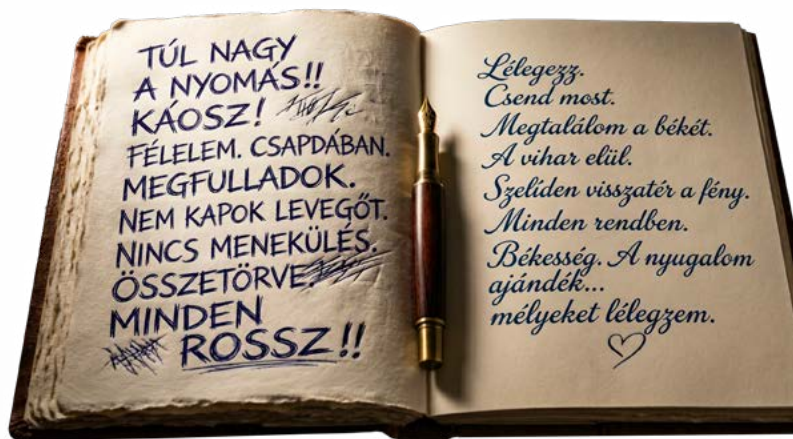 TÚL NAGY
A NYOMÁS!!
KÁOSZ!
FÉLELEM. CSAPDÁBAN.
MEGFULLADOK.
NEM KAPOK LEVEGŐT.
NINCS MENEKÜLÉS.
ÖSSZETÖRVE.
MINDEN
ROSSZ!!
Lélegezz.
Csend most.
Megtalálom a békét.
A vihar elül.
Szelíden visszatér a fény.
Minden rendben.
Békesség. A nyugalom
ajándék...
mélyeket lélegzem.